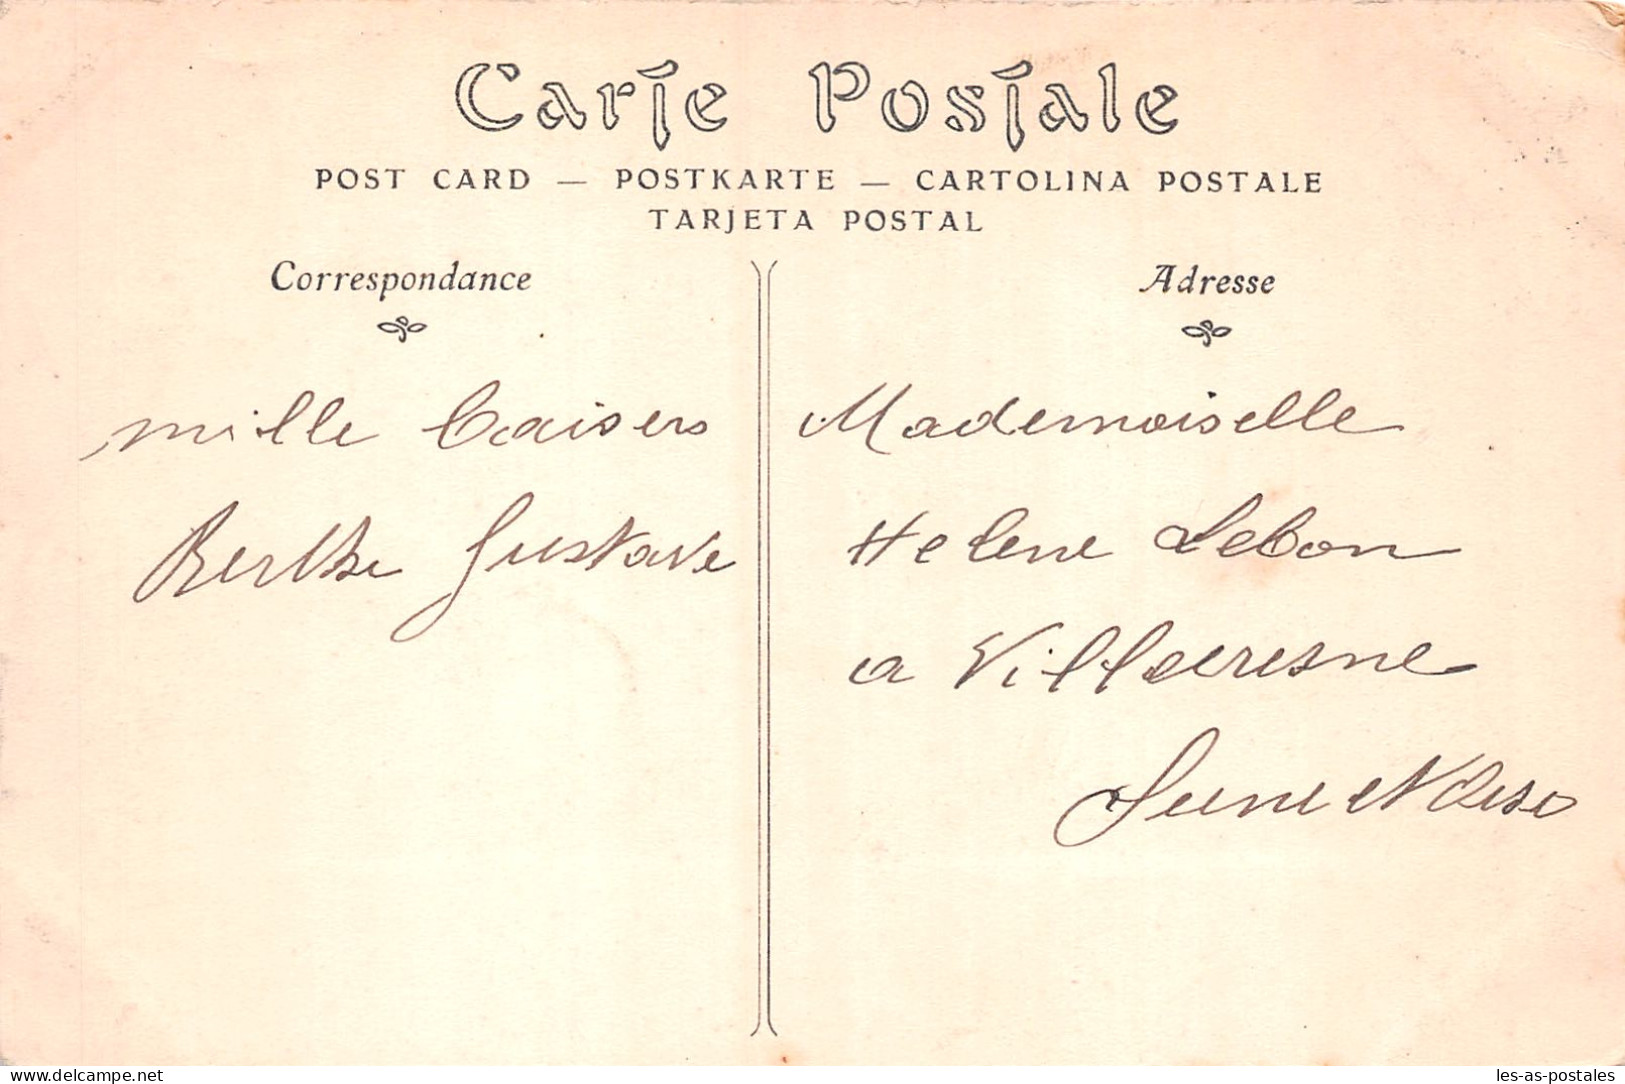 Carte Postale
POST CARD — POSTKARTE — CARTOLINA POSTALE
TARJETA POSTAL
Correspondance
mille baisers
Berthe Gustave
Adresse
Mademoiselle
Helene Lebon
a Villecresne
Seine et Oise
www.delcampe.net
les-as-postales